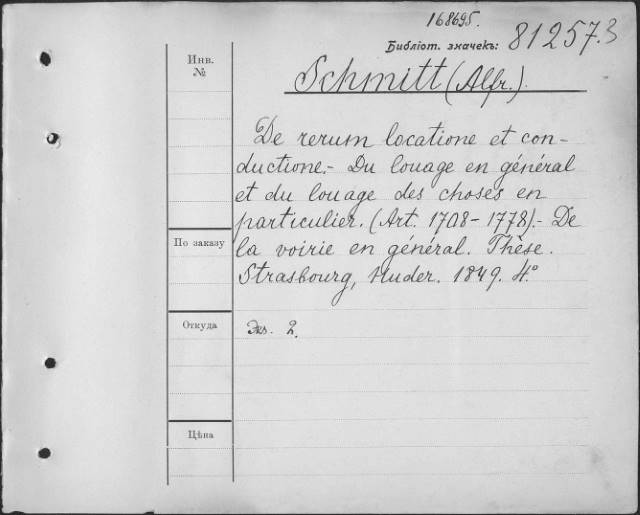 168695.
Библіот. значекъ: 81257.3
Инв.
№
Schmitt (Alfr.).
De rerum locatione et con-
ductione.- Du louage en général
et du louage des choses en
particulier. (Art. 1708-1778).- De
la voirie en général. Thèse.
Strasbourg, Huder. 1849. 4.°
По заказу
Откуда
Экз. 2.
Цѣна